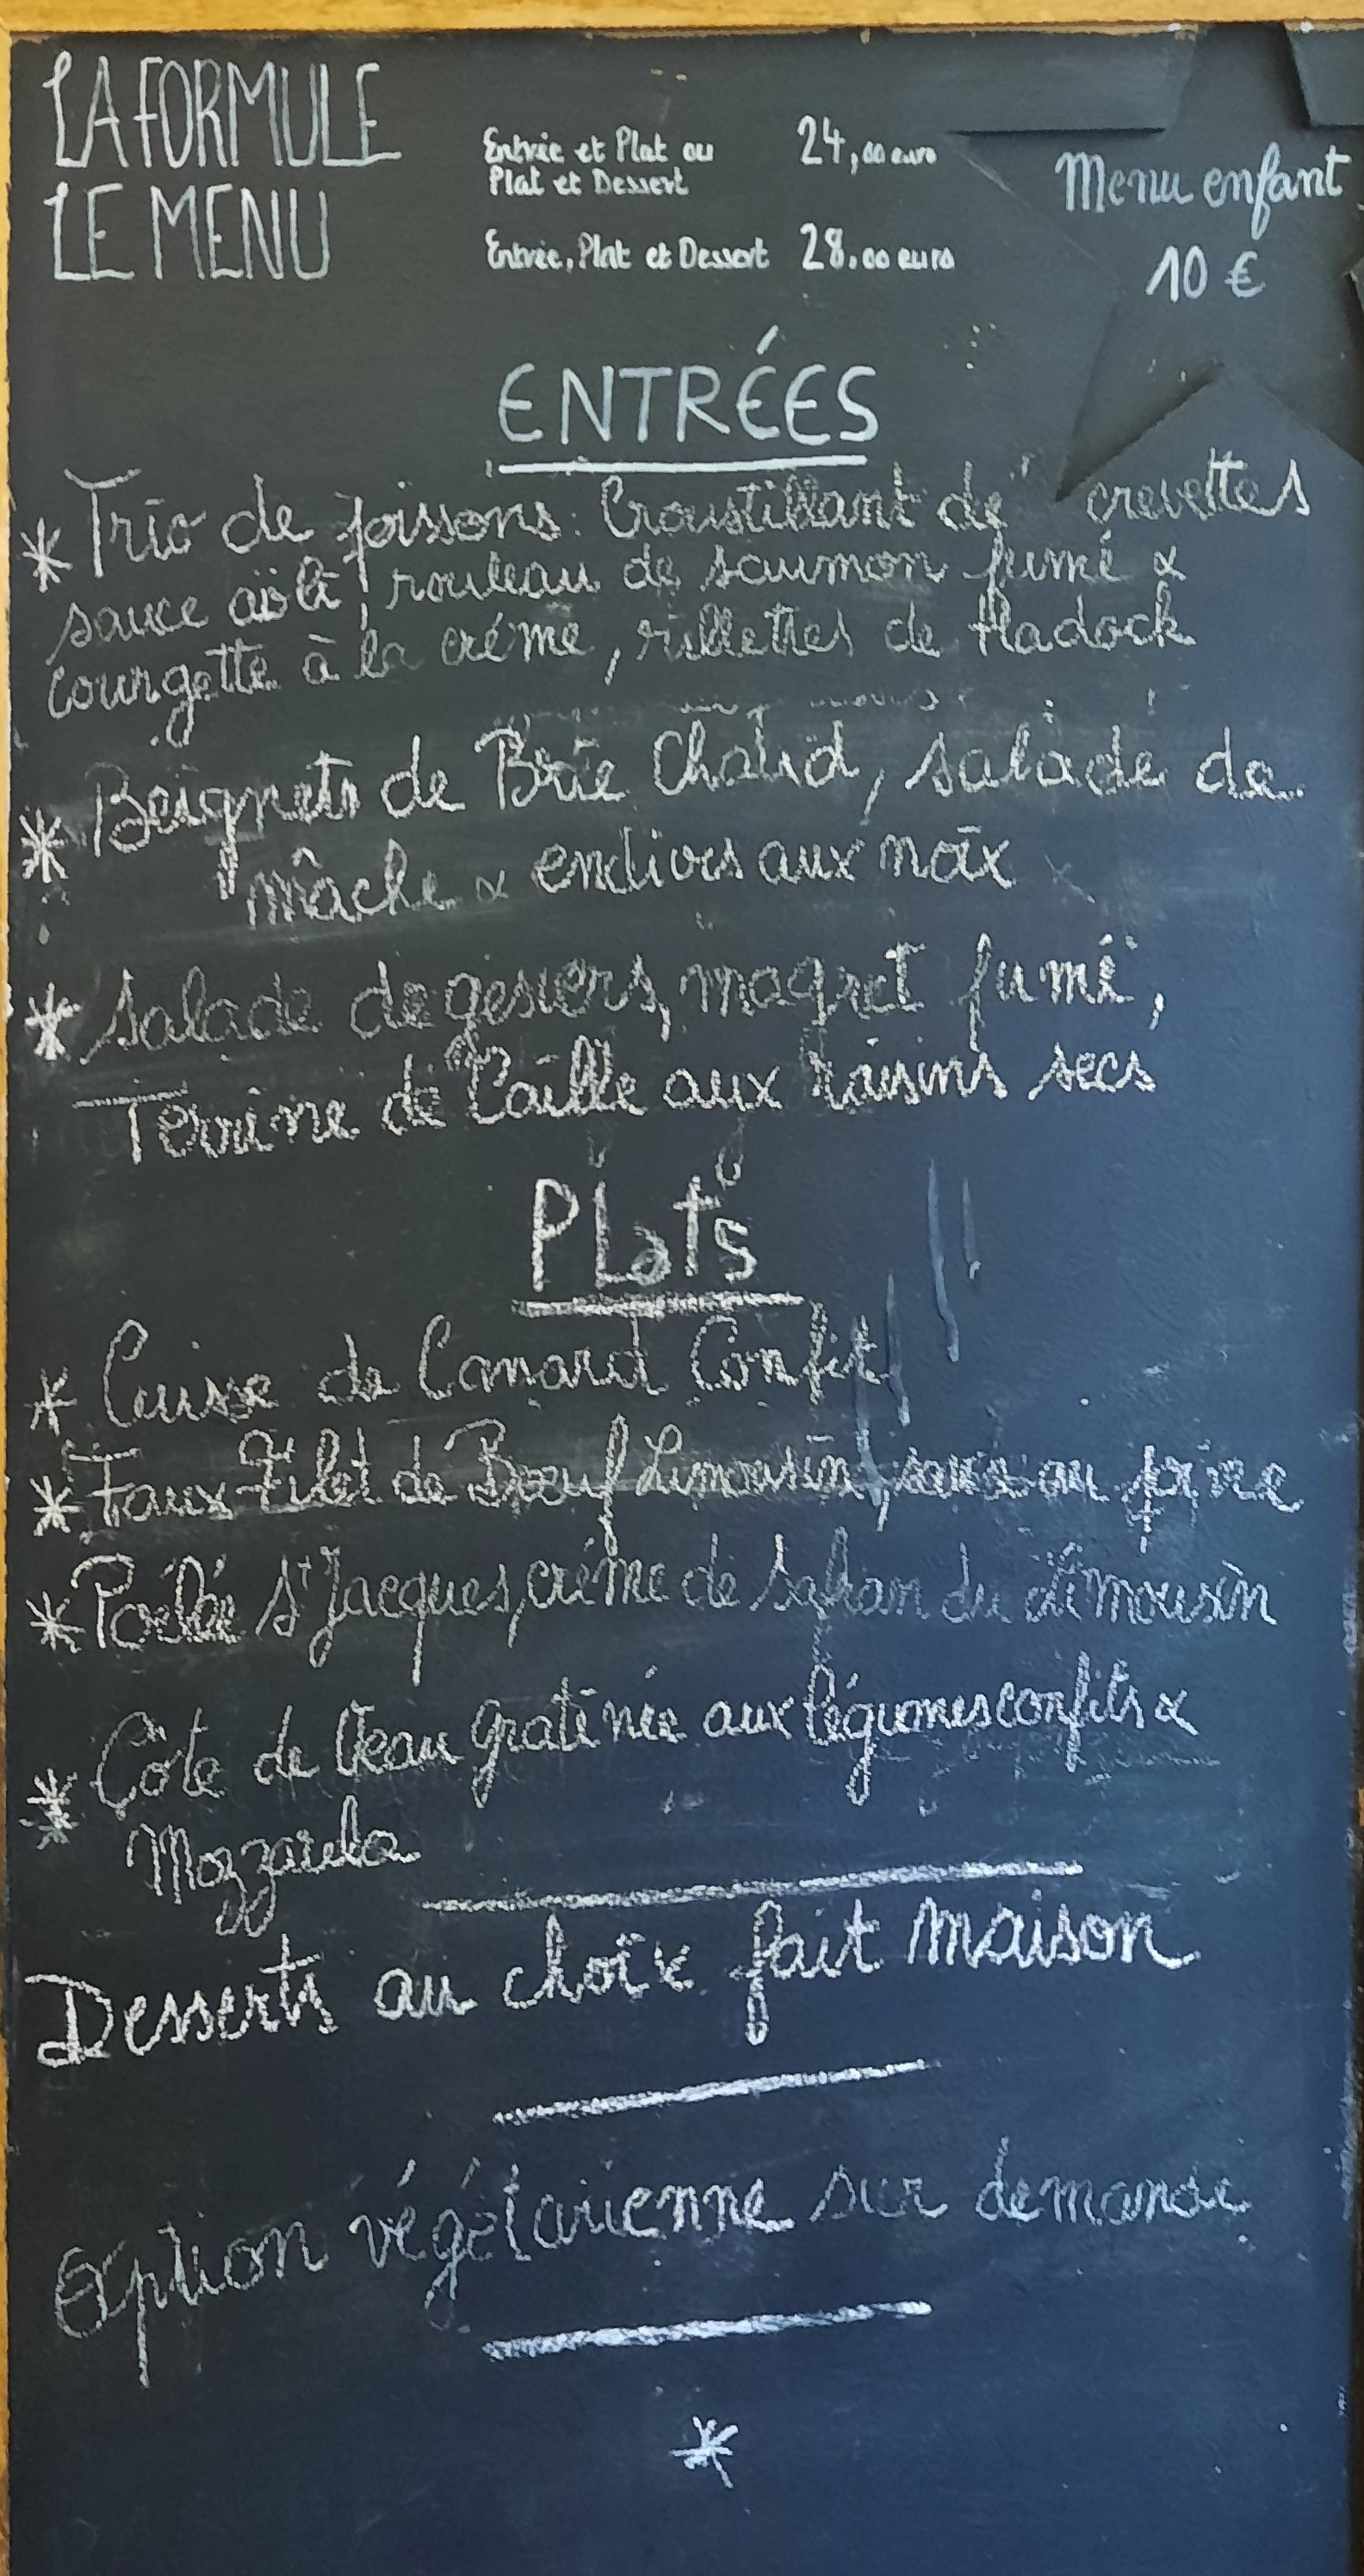 LA FORMULE
Entrée et Plat ou 24,00 euro
Plat et Dessert
LE MENU
Entrée, Plat et Dessert 28.00 euro
Menu enfant
10 €
ENTRÉES
* Trio de poissons: Croustillant de crevettes
sauce aïoli, rouleau de saumon fumé &
courgette à la crème, rillettes de Hadock
* Beignets de Brie Chaud, salade de
mâche & endives aux noix
* Salade de gesiers, magret fumé,
Terrine de Caille aux raisins secs
PLats
* Cuisse de Canard Confit
* Faux-Filet de Boeuf Limousin, sauce au poivre
* Poêlée St Jacques, crème de Safran du Limousin
* Côte de Veau gratinée aux légumes confits &
Mozzarella
Desserts au choix fait maison
Option végétarienne sur demande
*